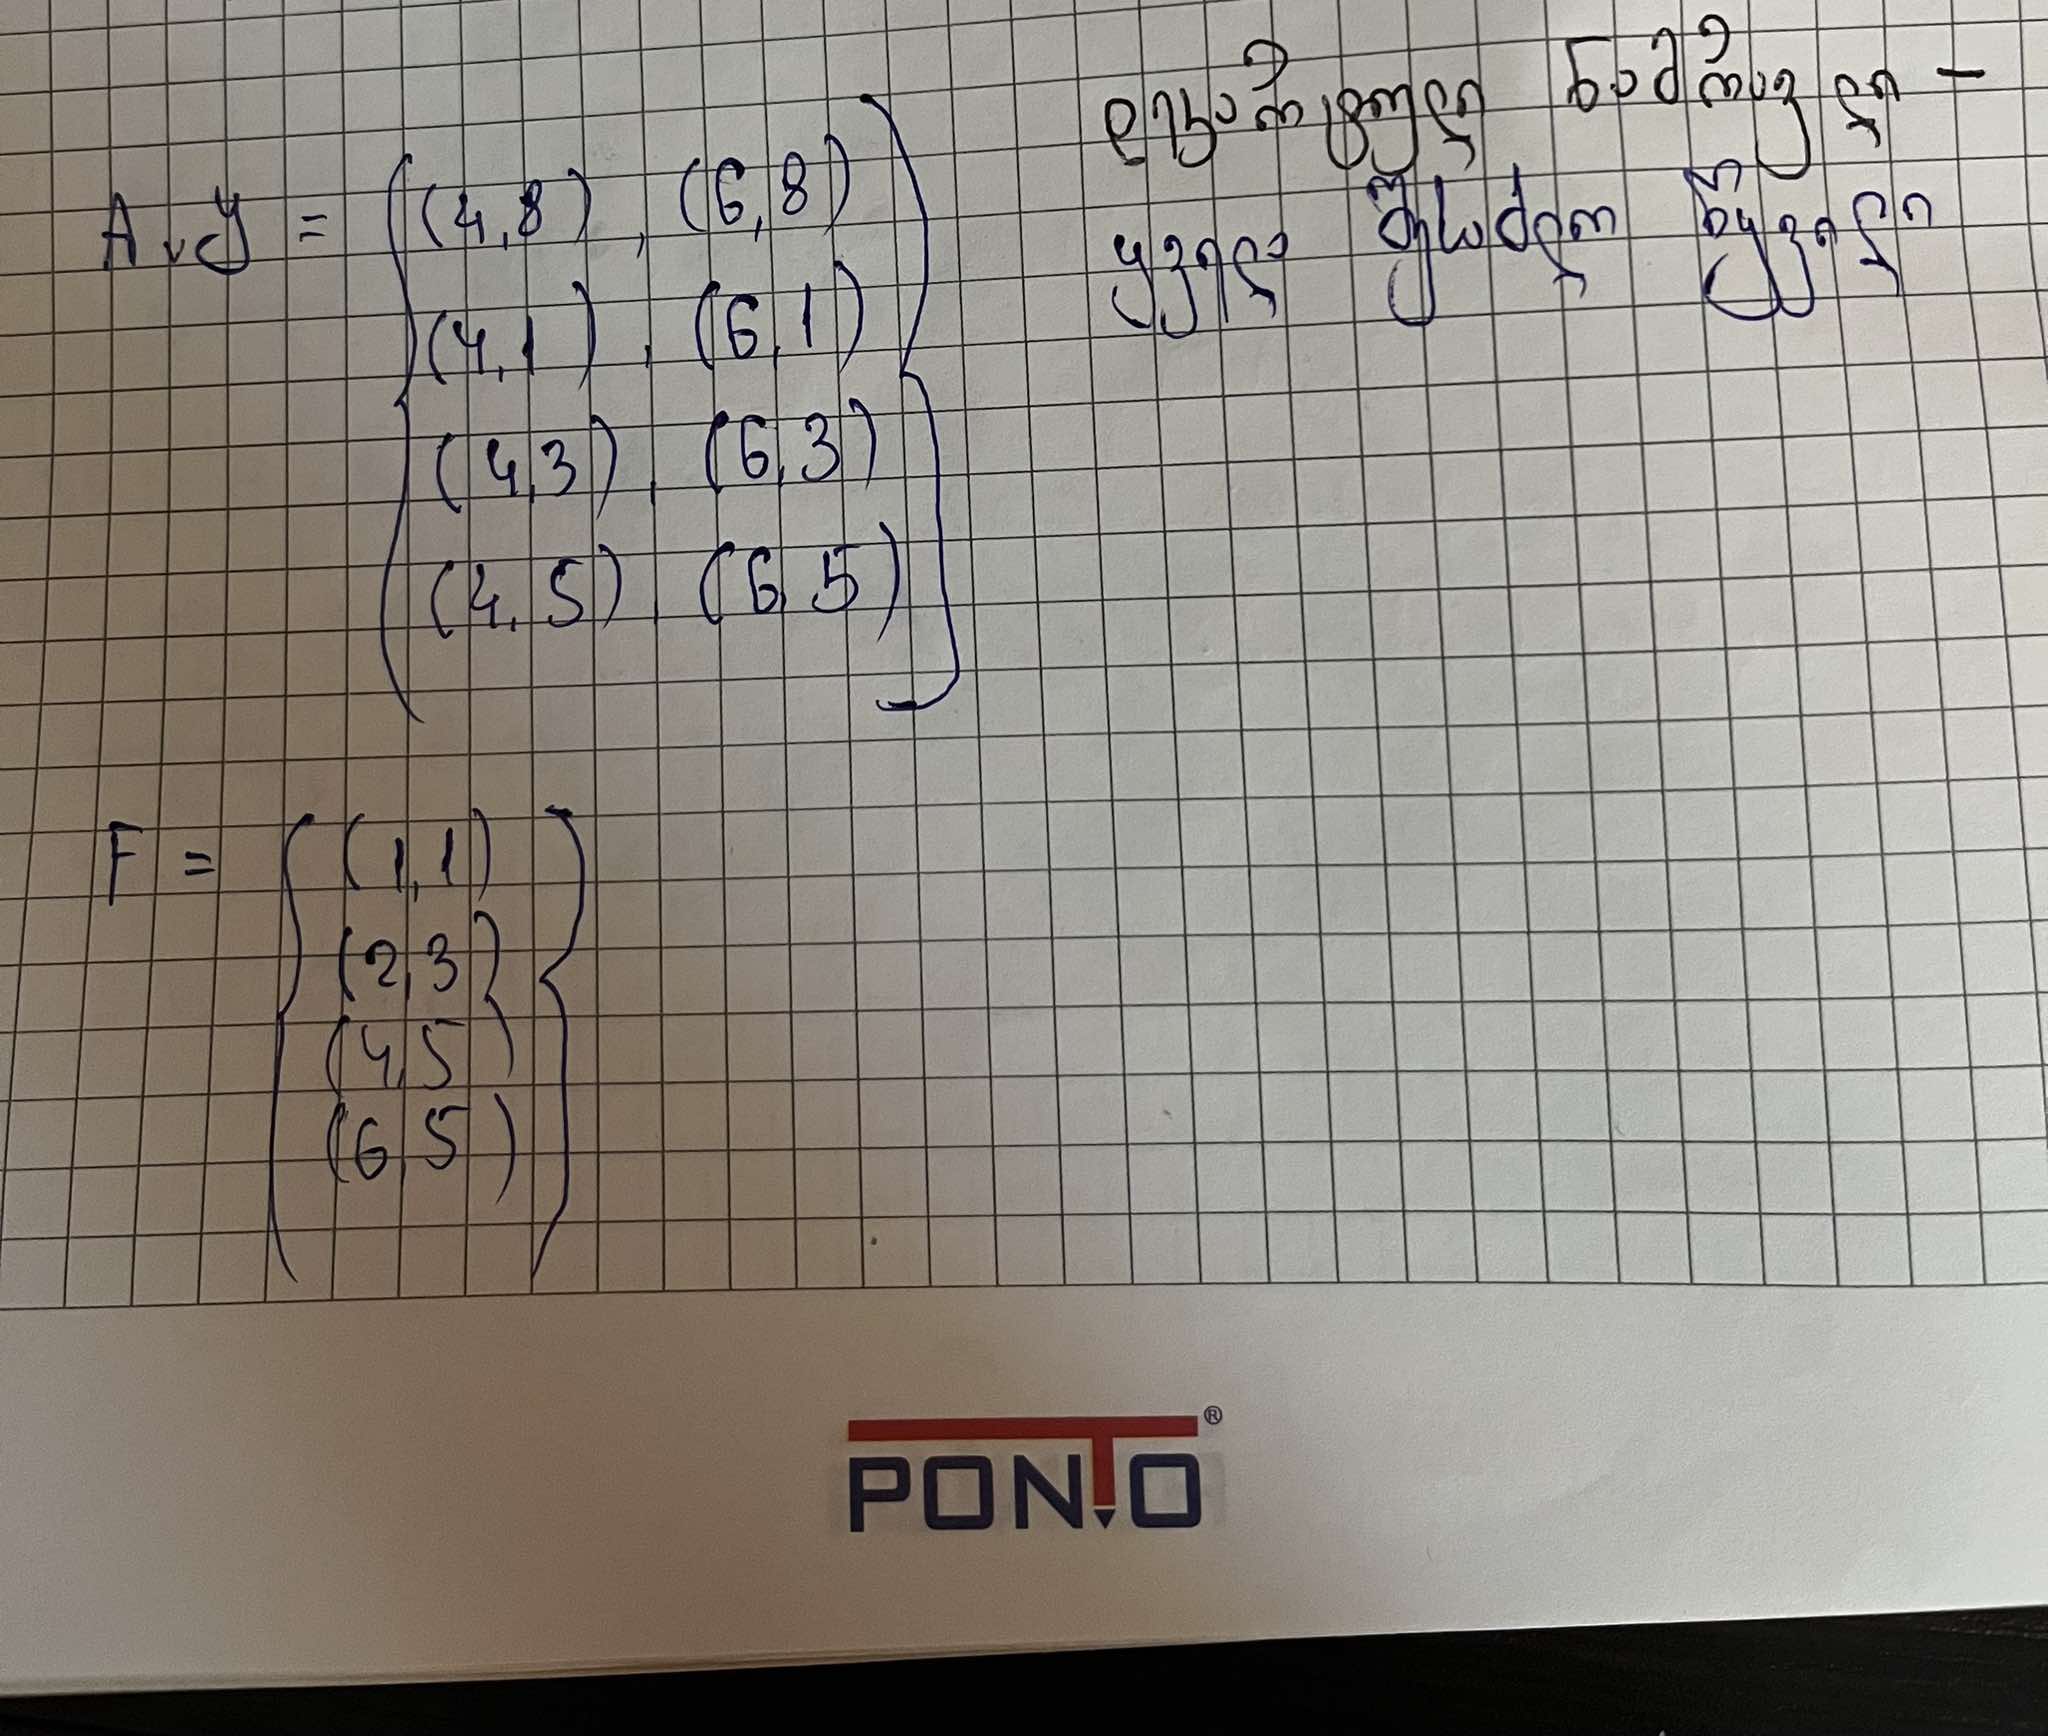 A x Y = { (4,8) , (6,8)
(4,1) , (6,1)
(4,3) , (6,3)
(4,5) , (6,5) }
დეკარტული ნამრავლი -
ყველა შესაძლო წყვილი
F = { (1,1)
(2,3)
(4,5)
(6,5) }
PONTO®